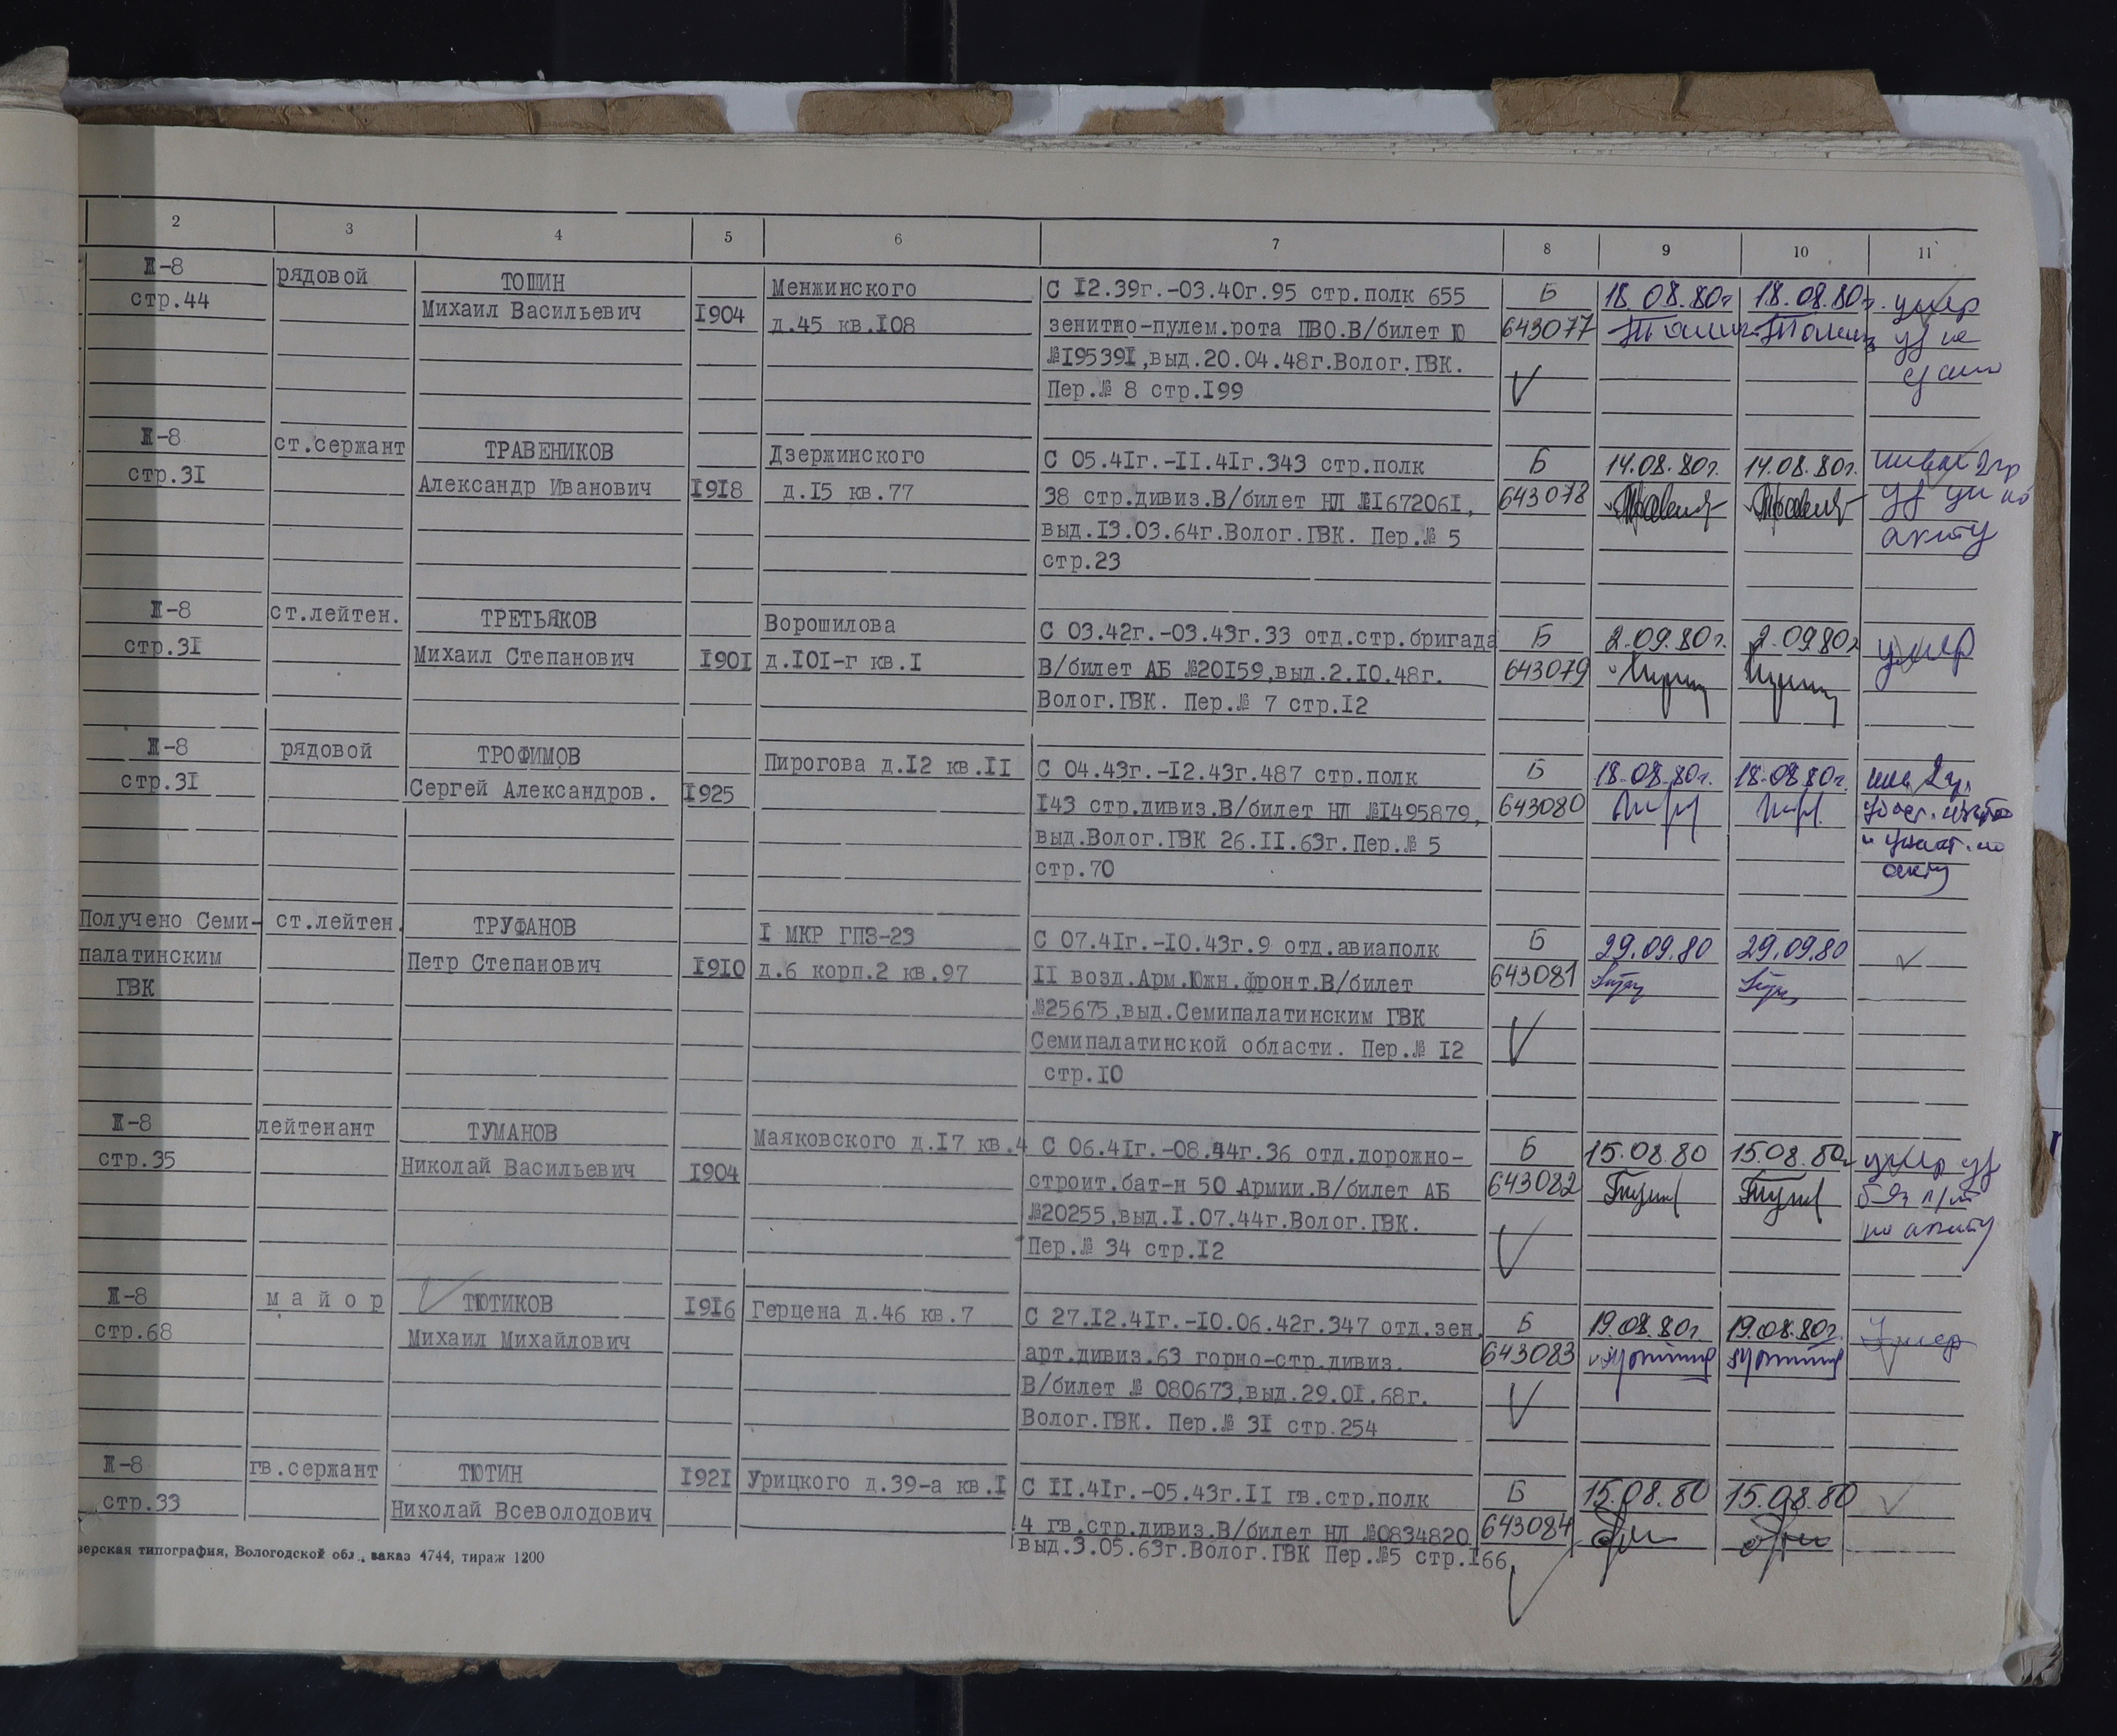 2 3 4 5 6 7 8 9 10 11
Ж-8 рядовой ТОШИН Менжинского С I2.39г.-03.40г.95 стр.полк 655 Б 18.08.80г 18.08.80г. умер
стр.44 Михаил Васильевич I904 д.45 кв.I08 зенитно-пулем.рота ПВО.В/билет Ю 643077
№I9539I,выд.20.04.48г.Волог.ГВК.
Пер.№ 8 стр.I99
Ж-8 ст.сержант ТРАВЕНИКОВ Дзержинского С 05.4Iг.-II.4Iг.343 стр.полк Б 14.08.80г. 14.08.80г.
стр.3I Александр Иванович I9I8 д.I5 кв.77 38 стр.дивиз.В/билет НЛ №I67206I, 643078
выд.I3.03.64г.Волог.ГВК. Пер.№ 5 акту
стр.23
Ж-8 ст.лейтен. ТРЕТЬЯКОВ Ворошилова С 03.42г.-03.43г.33 отд.стр.бригада Б 2.09.80г. 2.09.80г умер
стр.3I Михаил Степанович I90I д.I0I-г кв.I В/билет АБ №20I59,выд.2.I0.48г. 643079
Волог.ГВК. Пер.№ 7 стр.I2
Ж-8 рядовой ТРОФИМОВ Пирогова д.I2 кв.II С 04.43г.-I2.43г.487 стр.полк Б 18.08.80г. 18.08.80г.
стр.3I Сергей Александров. I925 I43 стр.дивиз.В/билет НЛ №I495879, 643080
выд.Волог.ГВК 26.II.63г.Пер.№ 5
стр.70 акту
Получено Семи- ст.лейтен. ТРУФАНОВ I МКР ГПЗ-23 С 07.4Iг.-I0.43г.9 отд.авиаполк Б 29.09.80 29.09.80
палатинским Петр Степанович I9I0 д.6 корп.2 кв.97 II возд.Арм.Южн.фронт.В/билет 643081
ГВК №25675,выд.Семипалатинским ГВК
Семипалатинской области. Пер.№ I2
стр.I0
Ж-8 лейтенант ТУМАНОВ Маяковского д.I7 кв.4 С 06.4Iг.-08.44г.36 отд.дорожно- Б 15.08.80 15.08.80г умер
стр.35 Николай Васильевич I904 строит.бат-н 50 Армии.В/билет АБ 643082
№20255,выд.I.07.44г.Волог.ГВК. по акту
Пер.№ 34 стр.I2
Ж-8 майор ТЮТИКОВ I9I6 Герцена д.46 кв.7 С 27.I2.4Iг.-I0.06.42г.347 отд.зен. Б 19.08.80г. 19.08.80г. Умер
стр.68 Михаил Михайлович арт.дивиз.63 горно-стр.дивиз. 643083
В/билет № 080673,выд.29.0I.68г.
Волог.ГВК. Пер.№ 3I стр.254
Ж-8 гв.сержант ТЮТИН I92I Урицкого д.39-а кв.I С II.4Iг.-05.43г.II гв.стр.полк Б 15.08.80 15.08.80
стр.33 Николай Всеволодович 4 гв.стр.дивиз.В/билет НЛ №0834820 643084
выд.3.05.63г.Волог.ГВК Пер.№5 стр.I66
верская типография, Вологодской обл., заказ 4744, тираж 1200